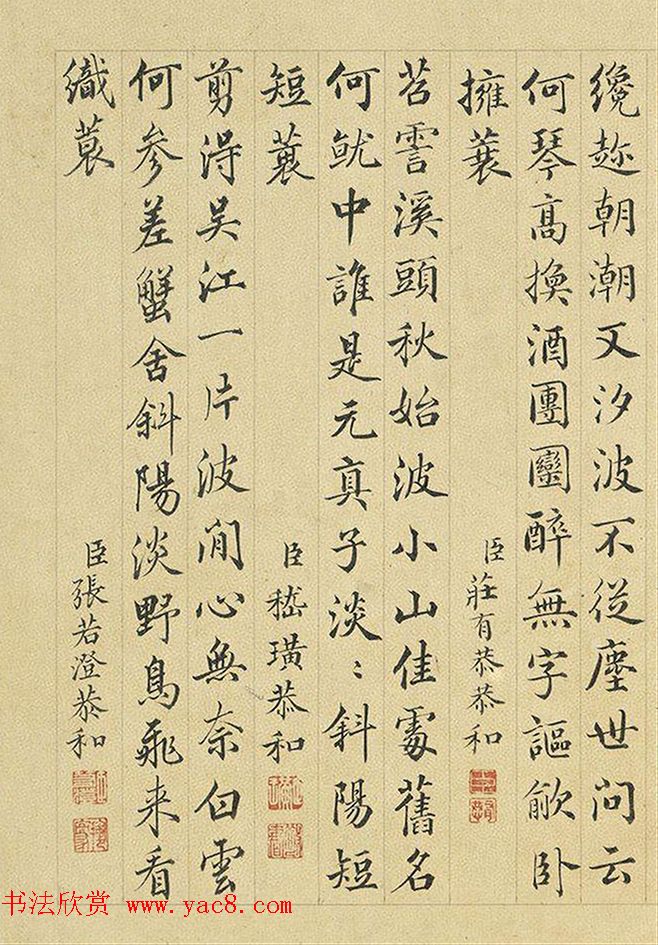 纔趂朝潮又汐波不從塵世问云
何琴高换酒團圞醉無字謳歈卧
擁蓑
臣莊有恭恭和
苕霅溪頭秋始波小山佳處舊名
何魷中誰是元真子淡〻斜陽短
短蓑
臣嵇璜恭和
剪得吴江一片波閒心無奈白雲
何参差蟹舍斜陽淡野鳥飛来看
織蓑
臣張若澄恭和
书法欣赏 www.yac8.com